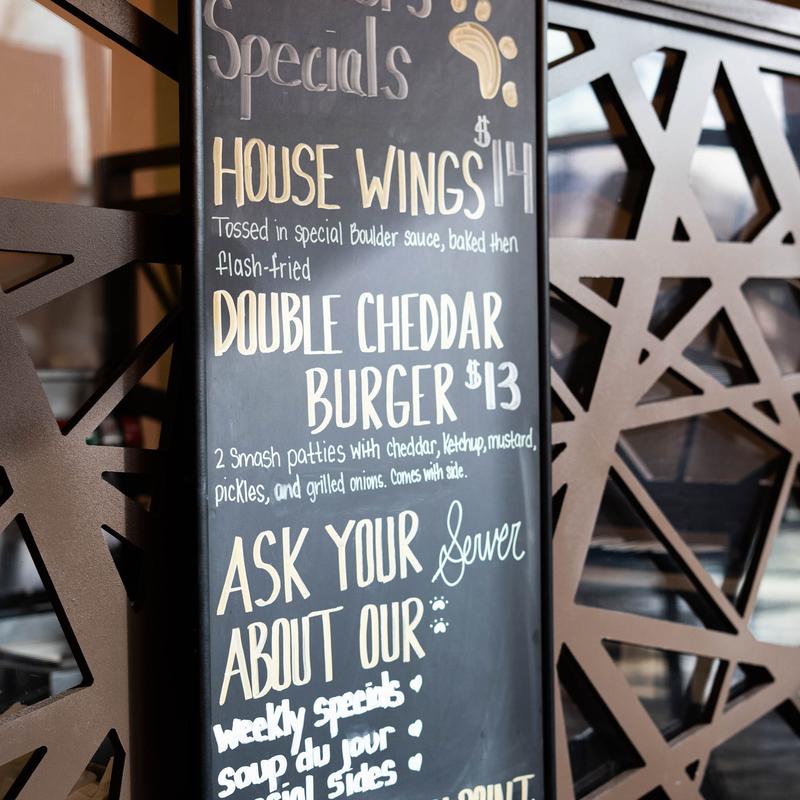 Specials
HOUSE WINGS $14
Tossed in special Boulder sauce, baked then
flash-fried
DOUBLE CHEDDAR
BURGER $13
2 Smash patties with cheddar, ketchup, mustard,
pickles, and grilled onions. Comes with side.
ASK YOUR Server
ABOUT OUR
weekly specials
soup du jour
sides